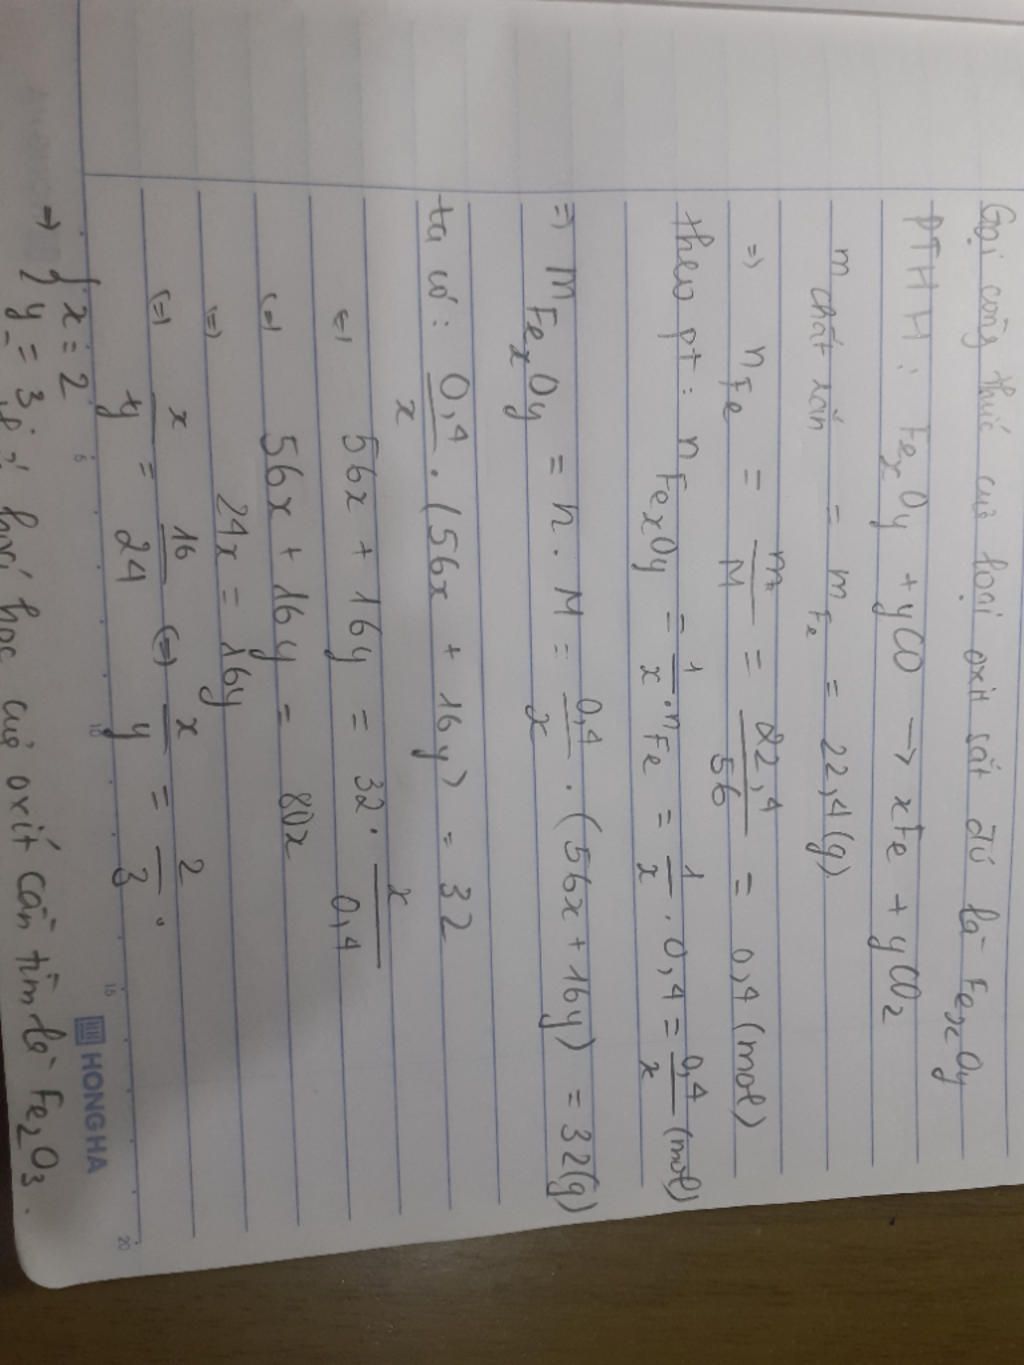 Gọi công thức của loại oxit sắt đó là FexOy
PTHH: FexOy + yCO → xFe + yCO2
m chất rắn = mFe = 22,4(g)
=> nFe = m/M = 22,4/56 = 0,4(mol)
theo pt: nFexOy = 1/x . nFe = 1/x . 0,4 = 0,4/x (mol)
=> mFexOy = n . M = 0,4/x . (56x + 16y) = 32(g)
ta có: 0,4/x . (56x + 16y) = 32
(=) 56x + 16y = 32 . x/0,4
(=) 56x + 16y = 80x
(=) 24x = 16y
(=) x/y = 16/24 (=) x/y = 2/3.
→ { x = 2
y = 3
hoá học của oxit cần tìm là Fe2O3.
HONG HA
5 10 15 20